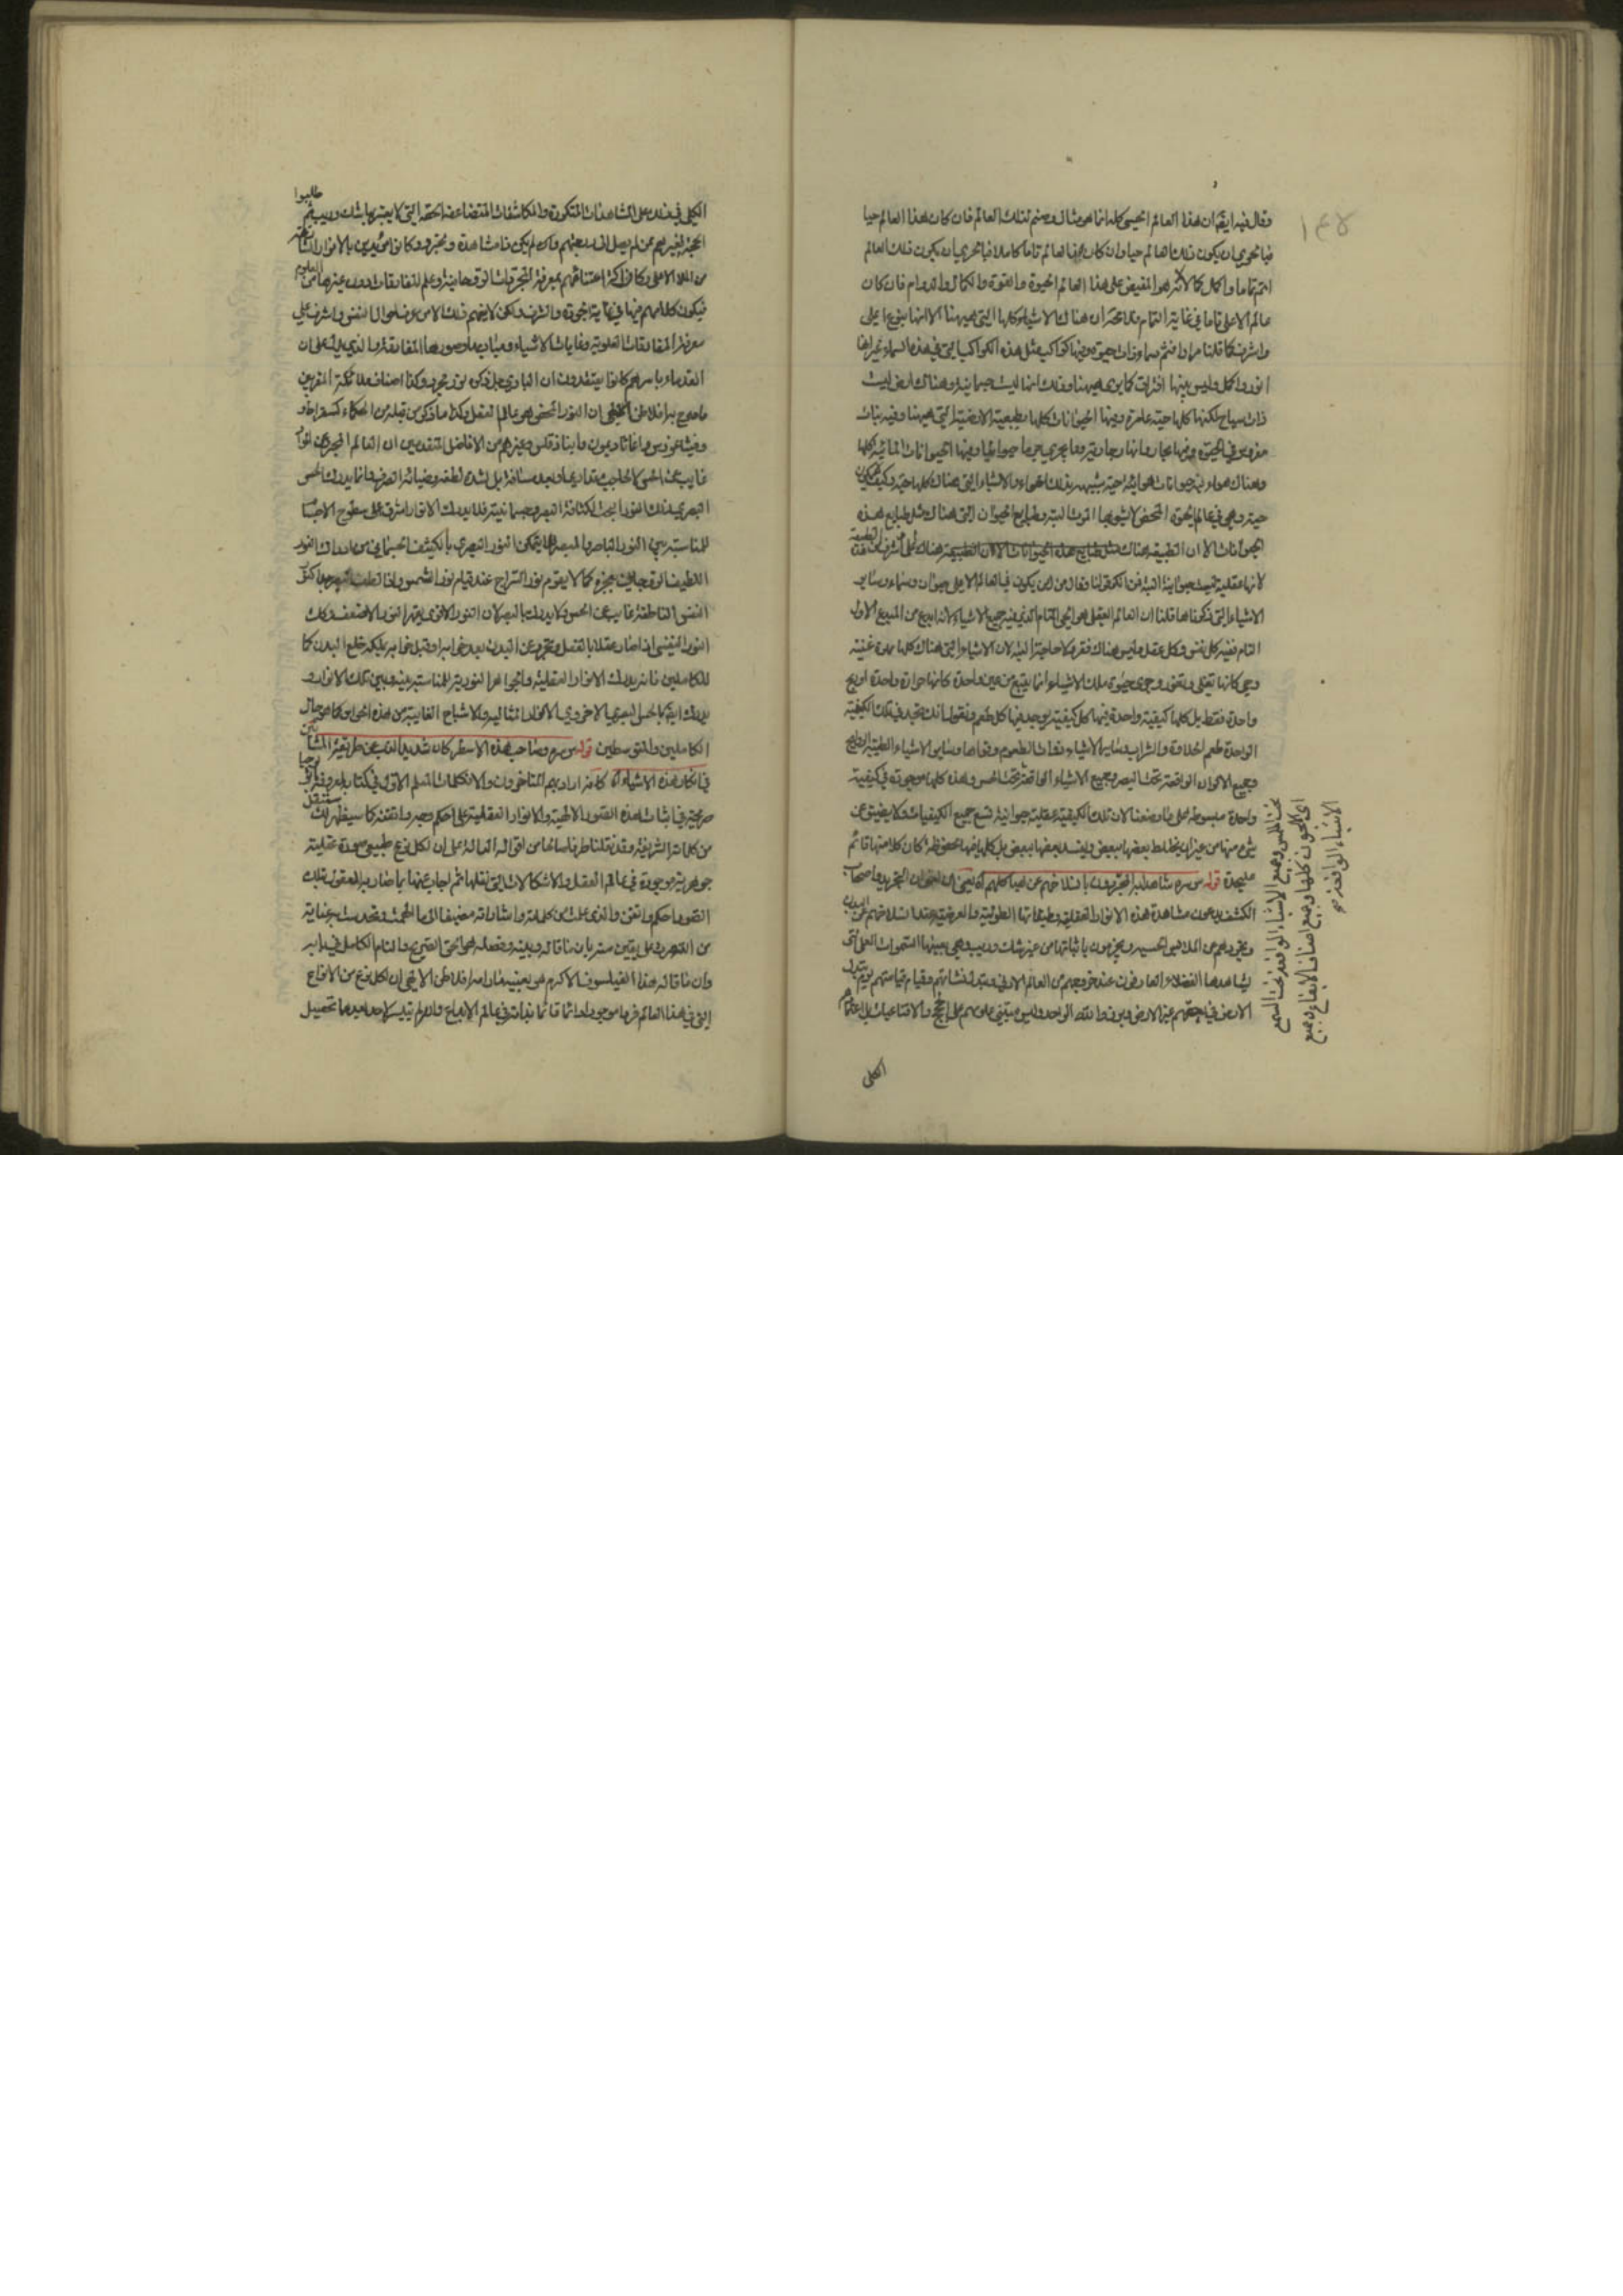 ١٤٨
وقال فيه ايضا ان هذا العالم الحسي كله انما هو مثال وصنم لذلك العالم فان كان هذا العالم حيا
فبالحري ان يكون ذلك العالم حيا وان كان هذا العالم تاما كاملا فبالحري ان يكون ذلك العالم
اتم تماما واكمل كمالا لانه هو المفيض على هذا العالم الحيوة والقوة والكمال والدوام فان كان
عالم الاعلى تاما في غاية التمام فلا محة ان هناك الاشياء كلها التي ههنا الا انها بنوع اعلى
واشرف كما قلنا مرارا فثم سماء ذات حيوة وفيها كواكب مثل هذه الكواكب التي في هذه السماء غير انها
انور واكمل وليس بينها افتراق كما يرى ههنا وذلك انها ليست جسمانية وهناك ارض ليست
ذات سباخ لكنها كلها حية عامرة وفيها الحيوانات كلها الطبيعية الارضية التي ههنا وفيه نبات
مغروس في الحيوة وفيها بحار وانهار جارية وما يجري جريا حيوانيا وفيها الحيوانات المائية كلها
وهناك هواء وفيه حيوانات هوائية حية شبيهة بذلك الهواء والاشياء التي هناك كلها حية وكيف لا يكون
حية وهي في عالم الحيوة المحض لا يشوبها الموت البتة وطبايع الحيوان التي هناك مثل طبايع هذه
الحيوانات الا ان الطبيعة هناك اعلى واشرف من هذه الطبيعة
لانها عقلية ليست حيوانية البتة فمن انكر قولنا وقال من اين يكون في العالم الاعلى حيوان وسماء وساير
الاشياء التي ذكرناها قلنا ان العالم العقلي هو الحي التام الذي فيه جميع الاشياء لانه ابدع من المبدع الاول
التام ففيه كل نفس وكل عقل وليس هناك فقر ولا حاجة البتة لان الاشياء التي هناك كلها مملوة غنية
وحي كانها تغلي وتفور وجري حيوة تلك الاشياء انما ينبع من عين واحدة كانها حرارة واحدة او ريح
واحدة فقط بل كلها كيفية واحدة فيها كل كيفية يوجد فيها كل طعم ونقول انك تجد في تلك الكيفية
الواحدة طعم الحلاوة والشراب وساير الاشياء ذوات الطعوم وقواها وساير الاشياء الطيبة الروايح
وجميع الالوان الواقعة تحت البصر وجميع الاشياء الواقعة تحت الحس وهذه كلها موجودة في كيفية
واحدة مبسوطة على ما وصفنا لان تلك الكيفية عقلية حيوانية تسع جميع الكيفيات ولا يضيق عن
شيء منها من غير ان يختلط بعضها ببعض ويفسد بعضها ببعض بل كلها فيها محفوظة كان كلا منها قائم
على حدة قوله س سره شاهدها المجردون بانسلاخهم عن هياكلهم اه يعني ان اخوان التجريد واصحاب
الكشف يدعون مشاهدة هذه الانوار العقلية وطبقاتها الطولية والعرضية عند انسلاخهم عن البدن
وتجردهم عن الملابس الحسية ويجزمون باثباتها من غير شك وريب وهي بعينها السموات العلى التي
يشاهدها الفضلاء العارفون عند خروجهم من العالم الادنى وتبدل نشاتهم وقيام قيامتهم يوم تبدل
الارض في حقهم غير الارض وبرزوا لله الواحد وليس مبتنى علومهم على الحجج والاقناعيات بل اعتمادهم
تحت اللمس وجميع الاشياء الواقعة تحت السمع
اي اللحون كلها وجميع اصناف الايقاع وجميع
الاشياء الواقعة صح
الكلي
الكلي في ذلك على المشاهدات المتكررة والمكاشفات المتضاعفة الحقة التي لا يعتريها شك وريب ثم طلبوا
الحجة لغيرهم ممن لم يصل الى درجتهم وان لم يكن ذا مشاهدة وتجرد وكانوا مؤيدين بالانوار الشارقة
من الملا الاعلى وكان اكثر اعتنائهم بمعرفة المجردات الروحانية وعلم المفارقات دون غيرها من العلوم
فيكون كلامهم فيها في غاية الجودة والشرف ولكن لا يفهم ذلك الا من عرف احوال النفس واشرف على
معرفة المفارقات العلوية وغايات الاشياء ومباديها وصورها المفارقة والذي يدل على ان
القدماء باسرهم كانوا يعتقدون ان الباري جل ذكره نور مجرد وكذا اصناف ملائكته المقربين
ما صرح به افلاطن الالهي ان النور المحض هو عالم العقل وكذا ما ذكره من قبله من الحكماء كسقراط و
وفيثاغورس واغاثاديمون وانباذقلس وغيرهم من الافاضل المتقدمين ان العالم المجرد عن المواد
غايب عن الحس لا لحاجب جداري او بعد مسافة بل لشدة لطفه وضيائه الصرف وانما يدرك الحس
البصري هذا النور البحت لكثافة البصر وجسمانيته فلا يدرك الا نورا مشرقا على سطوح الاجسام
للمناسبة بين النور الباصر والمبصر فلا يمكن النور البصري بالكثيف الجسماني من ادراك النور
اللطيف الروحاني بعجزه كما لا يقوم نور السراج عند قيام نور الشمس
النفس الناطقة غايب عن الحس ولا يدرك بالبصر لان النور الاقوى يقهر النور الاضعف وكل
النور النفسي اذا صار عقلا بالفعل وتجرد عن البدن بعد خرابه او قبل خرابه بملكة خلع البدن كما
للكاملين فانه يدرك الانوار العقلية والجواهر النورية للمناسبة بينه وبين تلك الانوار و
يدرك ايضا بالحس البصري الاخروي الانوار المثالية والاشباح الغايبة عن هذه الحواس كما هو حال
الكاملين والمتوسطين قوله س سره وصاحب هذه الاسطر كان شديد الذب عن طريقة المشائين
في انكار هذه الاشياء اه كانه اراد بهم المتاخرون والا فكلمات المعلم الاول في كتاب اثولوجيا
صريحة في اثبات هذه الصور الالهية والانوار العقلية على احكم وجه واتقنه كما سيظهر لك سننقل
من كلماته الشريفة وقد نقلنا طرفا صالحا من اقواله الدالة على ان لكل نوع طبيعي صورة عقلية
جوهرية موجودة في عالم العقل والاشكالات التي نقلها ثم اجاب عنها بما صار به المعقول بتلك
الصور احكم واتقن والذي علمنا من كلماته واشاراته مضيفا الى ما الهمت وتحدست به عناية
من التبصر وعلى يقين منه بان ما قاله وبينه وفصله هو الحق الصريح والتام الكامل في بابه
وان ما قاله هذا الفيلسوف الاكرم هو بعينه ما رامه افلاطن الالهي ان لكل نوع من الانواع
التي في هذا العالم فردا موجودا دائما قائما بذاته في عالم الابداع والذي لم يتيسر لاحد بعدهما تحصيل